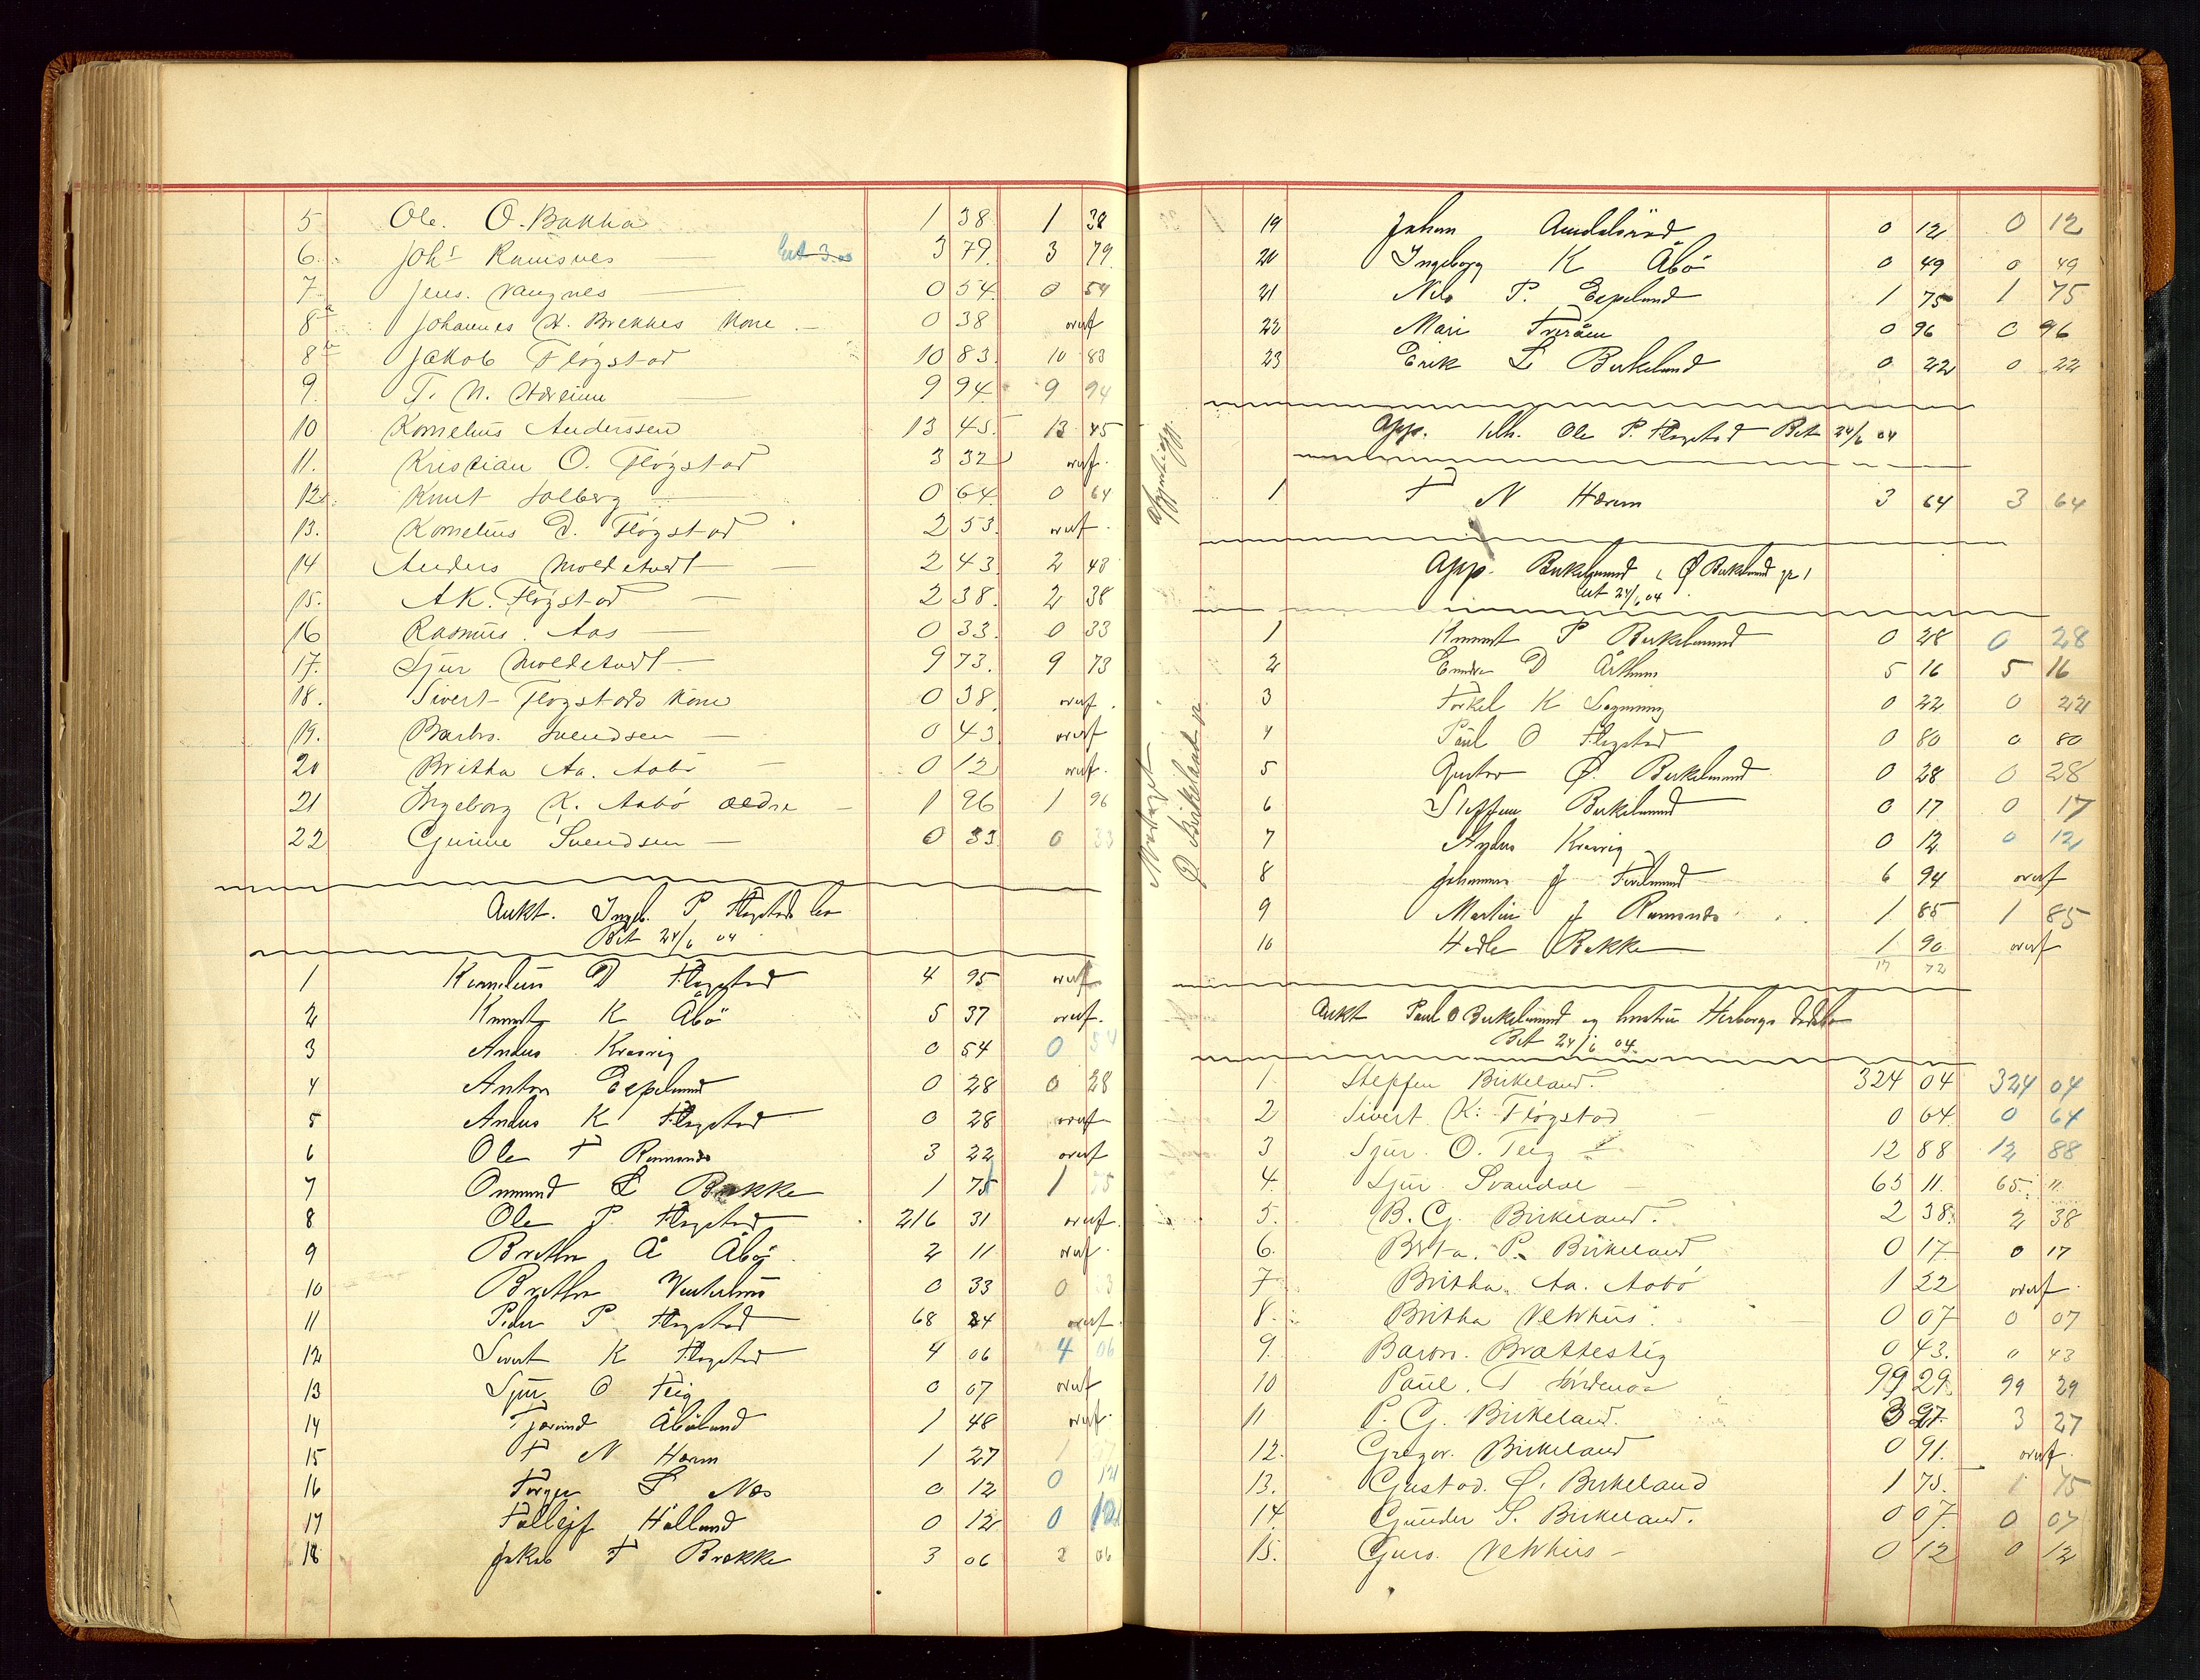 5 Ole. O. Bakka 1 38 1 38
6. Johs Ramsnes 3 79. 3 79.
7 Jens. Vangnes 0 54. 0 54
8a Johannes H. Brekkes Kone 0 38 overf
8b Jakob Fløgstad 10 83. 10 83
9. T. N. Hæreim 9 94. 9 94
10 Kornelius Anderssen 13 45. 13 45
11. Kristian O. Fløgstad 3 32 overf.
12. Knut Solberg 0 64. 0 64
13. Kornelius D. Fløgstad 2 53. overf.
14 Anders Moldetvedt 2 43. 2 43
15. A K. Fløgstad 2 38. 2 38
16 Rasmus. Aas 0 33. 0 33
17. Sjur Moldetvedt 9 73. 9 73
18. Sivert Fløgstads Kone 0 38. overf.
19. Barbro. Svendsen 0 43. overf
20 Britha Aa. Aabø 0 12 overf.
21 Ingeborg K. Aabø ældre 1 96 1 96
22 Gurine Svendsen 0 33. 0 33
Aukt. Ingb. P. Fløgstads bo
Bet 24/6 04
1 Kornelius D Fløgstad 4 95 overf
2 Knut K Åbø 5 37 overf.
3 Anders Kravig 0 54 0 54
4 Anton Espeland 0 28 0 28
5 Anders K Fløgstad 0 28 overf
6 Ole T Ramsnes 3 22 overf
7 Ommund L Bakke 1 75 1 75
8 Ole P. Fløgstad 216 31 overf.
9 Britha Å Åbø 2 11 overf.
10 Britha 0 33 0 3
11 Peder P Fløgstad 68 24 overf.
12 Sivert K Fløgstad 4 06 4 06
13 Sjur O Teig 0 07 overf
14 Åbøland 1 48 overf.
15 T N Hærem 1 27 1 27
16 Torger L Næs 0 12 0 12
17 Tollejf Halland 0 12 0 12
18 Jakob T Brekke 3 06 2 06
19 Johan 0 12 0 12
20 Ingeborg K Åbø 0 49 0 49
21 Nils P. Espeland 1 75 1 75
22 Mari Tveråen 0 96 0 96
23 Erik L Birkeland 0 22 0 22
App. Ole P. Fløgstad Bet 24/6 04
1 T N Hærem 3 64 3 64
App. Birkeland Ø Birkeland gr 1
bet 24/6 04
1 Knut P Birkeland 0 28 0 28
2 Endre D Årthun 5 16 5 16
3 Torkel K 0 22 0 22
4 Paul O Fløgstad 0 80 0 80
5 Gustav Ø. Birkeland 0 28 0 28
6 Steffen Birkeland 0 17 0 17
7 Anders Kravig 0 12 0 12
8 Johannes J 6 94 overf
9 Martin J Ramsnes 1 85 1 85
10 Helle Bakke 1 90 overf
17 72
Aukt Paul O Birkeland og hustru Herborgs dødsbo
Bet 24/6 04.
1 Steffen Birkeland. 324 04 324 04
2 Sivert K. Fløgstad 0 64. 0 64
3 Sjur. O. Teig 12 88 12 88
4. Sjur. Svandal 65 11. 65. 11.
5. B. G. Birkeland. 2 38. 2 38
6. Berta. P. Birkeland 0 17 0 17
7. Britha. Aa. Aabø 1 22 overf.
8. Britha Vetrhus. 0 07 0 07
9. Barbro. Brattestig 0 43. 0 43
10 Paul. T Sørdenaa 99 29 99 29
11 P. G. Birkeland. 3 27 3 27
12. Gregor. Birkeland 0 91. overf.
13. Gustav. Ø. Birkeland 1 75. 1 75
14. Gunder S. Birkeland. 0 07. 0 07
15. Guro. Vetrhus 0 12 0 12